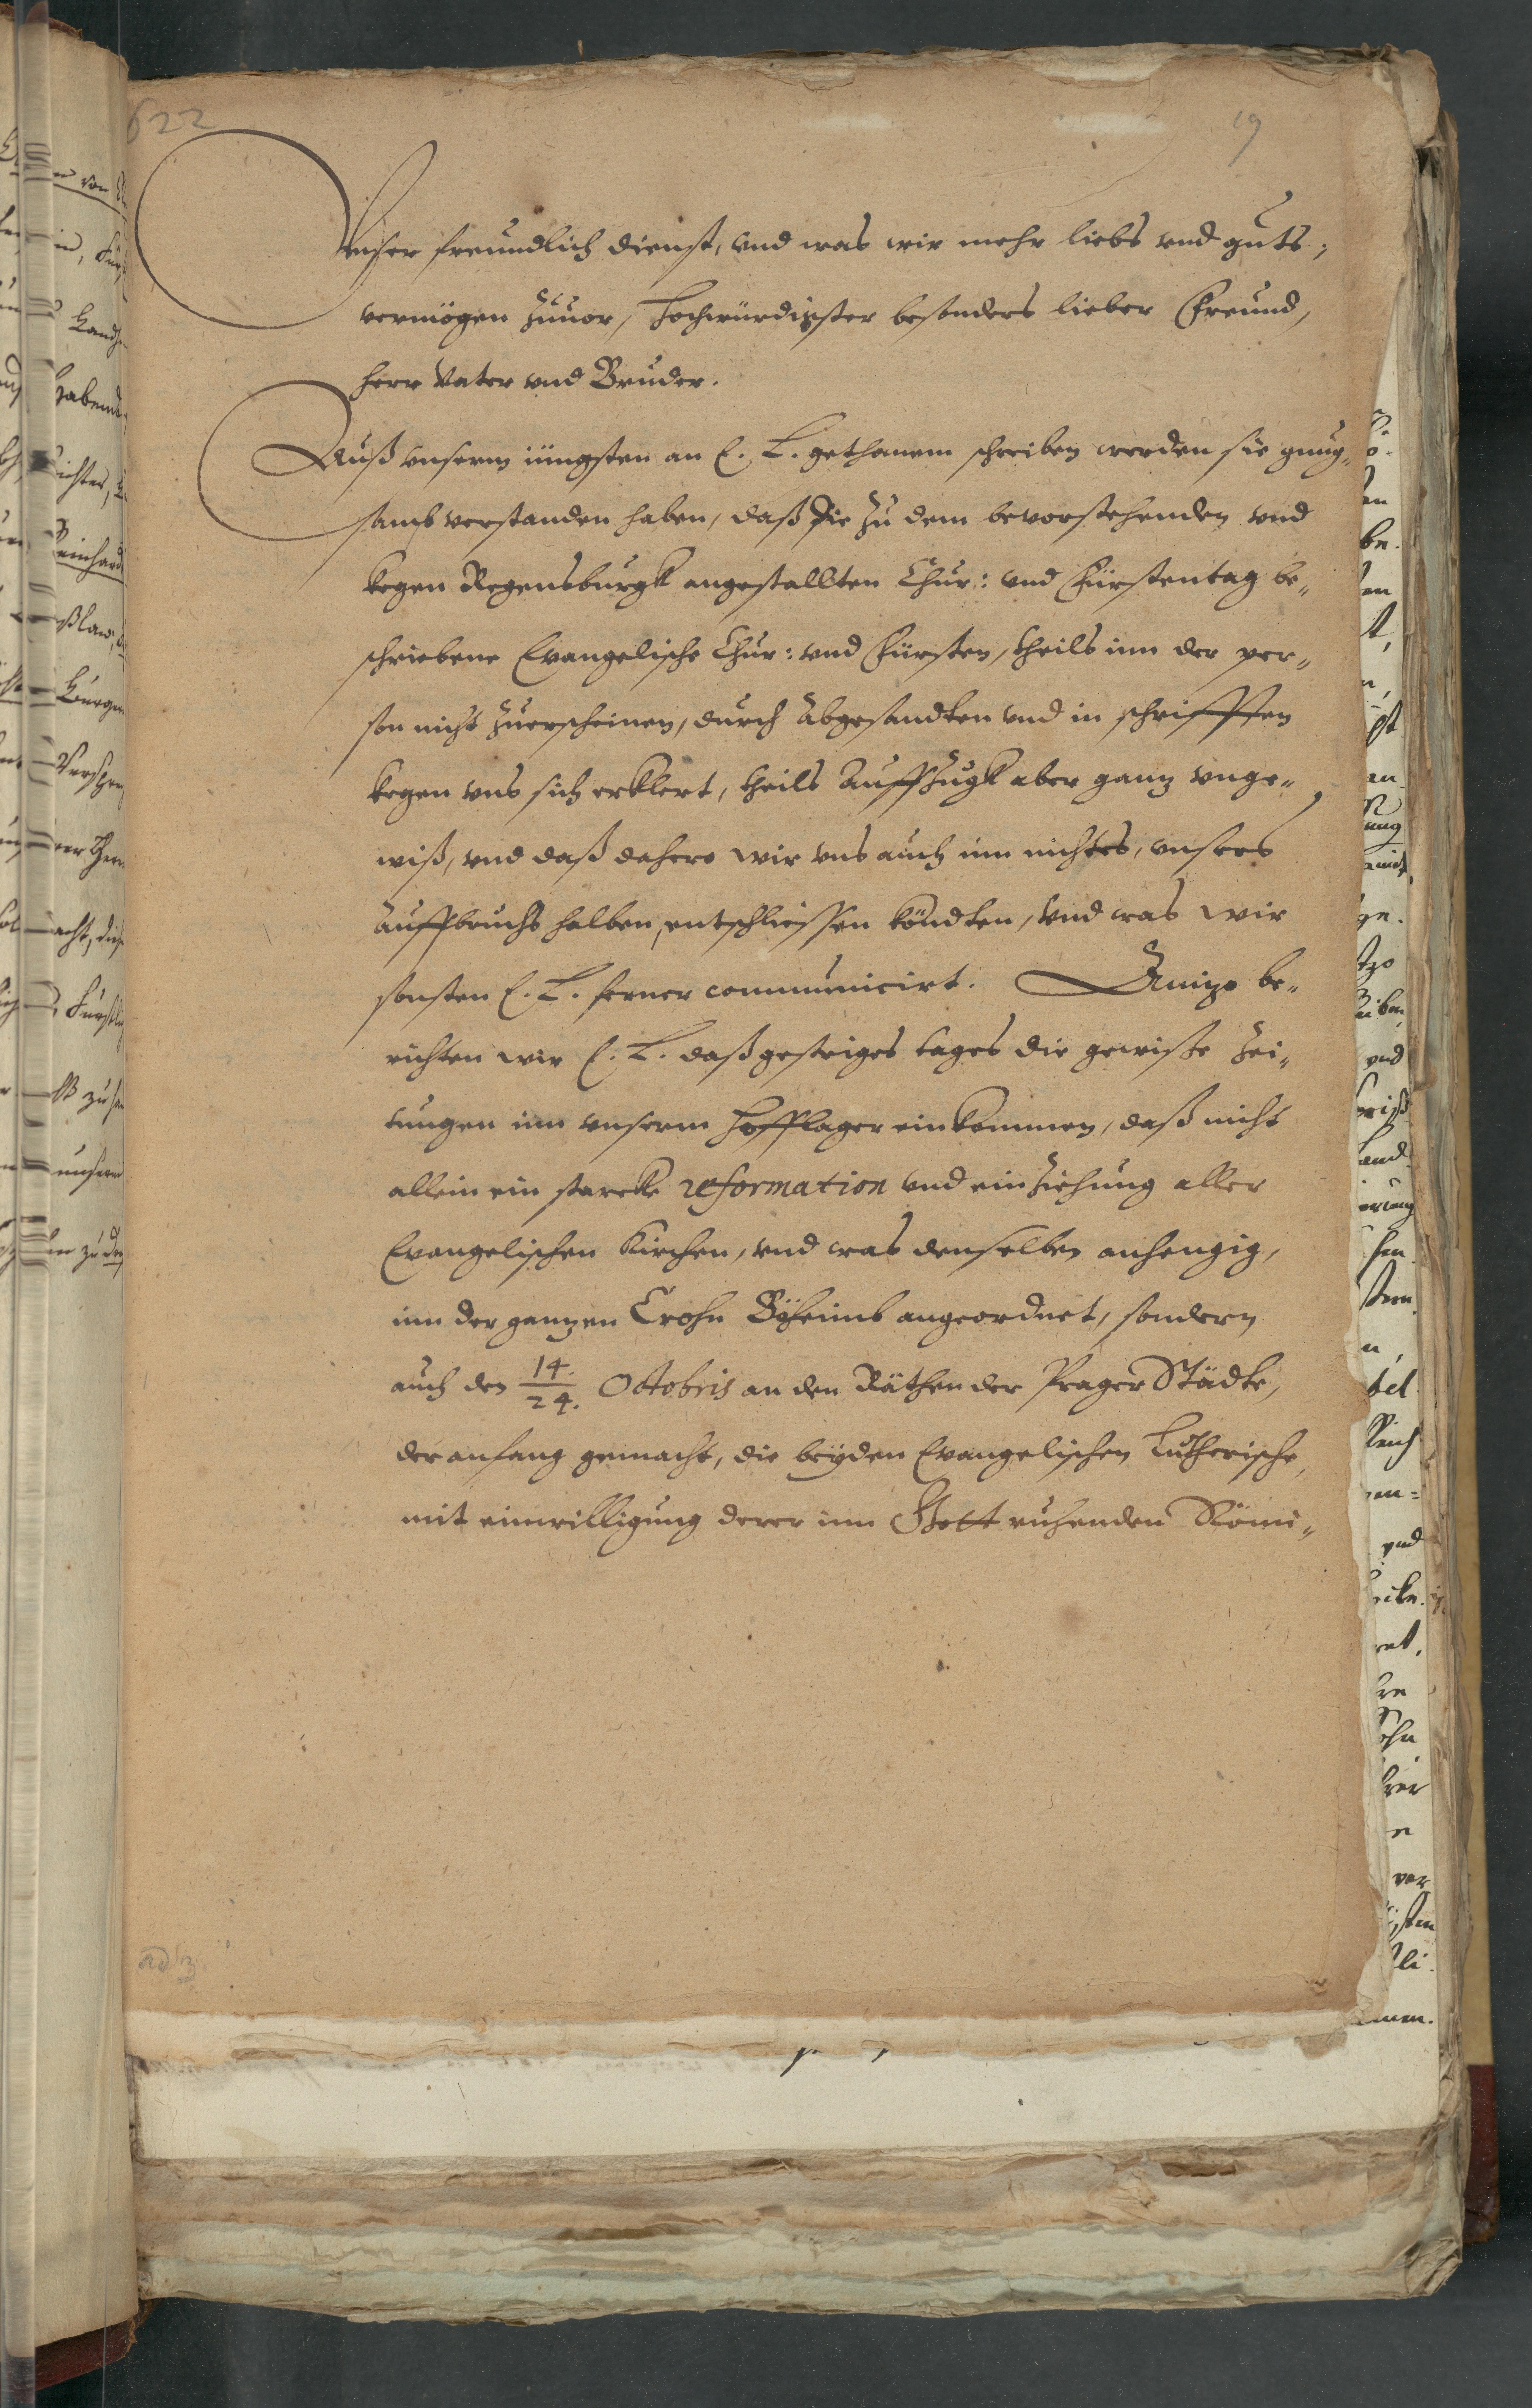 622
19
Vnser freundlich dienst, vnd was wir mehr liebs vnd guts,
vermögen zuuor, Hochwürdigster besonders lieber Freund,
Herr Vater vnd Bruder.
Auß vnserm iüngsten an E. L. gethanem schreiben werden sie gnug-
samb verstanden haben, daß die zu dem bevorstehenden vnd
kegen Regensburgk angestallten Chur: vnd Fürstentag be-
schriebene Evangelische Chur: vnd Fürsten, theils inn der per-
son nicht zuerscheinen, durch abgesandten vnd in schrifften
kegen vns sich erklert, theils auffzugk aber ganz vnge-
wiß, vnd daß dahero wir vns auch inn nichtes, vnsers
auffbruchs halben, entschliessen köndten, vnd was wir
sonsten E. L. ferner communicirt. Anizo be-
richten wir E. L. daß gestriges tages die gewisse zei-
tungen inn vnserm Hofflager einkommen, daß nicht
allein ein starcke reformation vnd einziehung aller
Evangelischen Kirchen, vnd was denselben anhengig,
inn der ganzen Crohn Böheimb angeordnet, sondern
auch den 14./24. Octobris an den Räthen der Prager Städte,
der anfang gemacht, die beyden Evangelischen Lutherische,
mit einwilligung derer inn Gott ruhenden Römi-
ad 3.